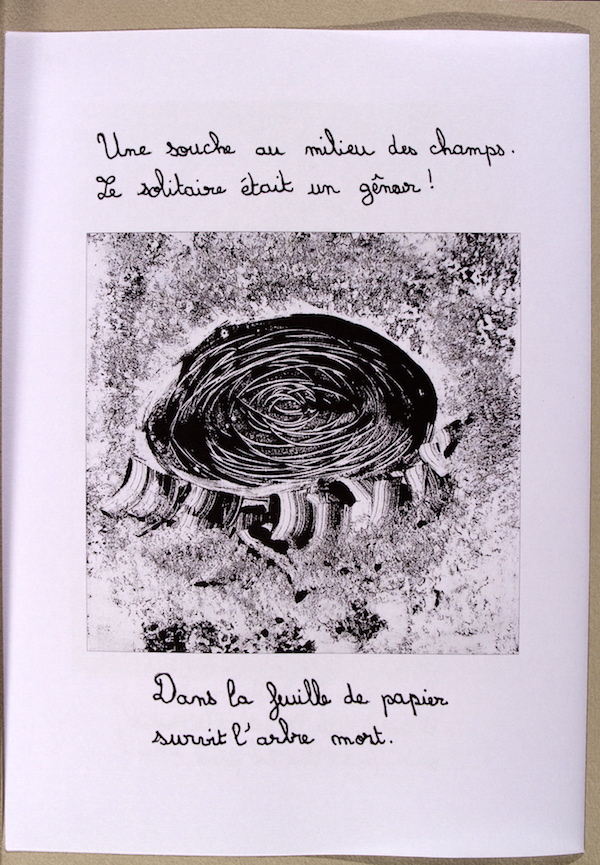 Une souche au milieu des champs.
Le solitaire était un gêneur !
Dans la feuille de papier
survit l'arbre mort.